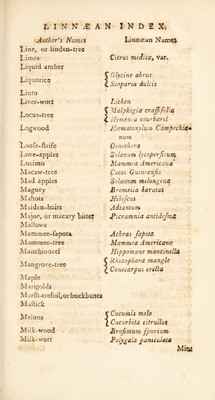 LINNÆAN INDEX.
Author's Names Linnæan Names
Line, or linden-tree
Limes Citrus medica, var.
Liquid amber
Liquorice { Glycine abrus
Scoparia dulcis
Liuto
Liver-wort Lichen
Locus-tree { Malphigia crassifolia
Hymenæa courbaril
Logwood Hæmatoxylum Campechia-
num
Loose-strife Oenothera
Love-apples Solanum lycopersicum
Lucimo Mammea Americana
Macaw-tree Cocos Guineensis
Mad apples Solanum melongena
Maguey Bromelia karatas
Mahots Hibiscus
Maiden-hairs Adiantum
Majoe, or macary bitter Picramnia antidesma
Mallows
Mammee-sapota Achras sapota
Mammee-tree Mammea Americana
Manchioneel Hippomane mancinella
Mangrove-tree { Rhizophora mangle
Conocarpus erecta
Maple
Marigolds
Marsh-trefoil, or buckbanes
Mastick
Melons { Cucumis melo
Cucurbita citrullus
Milk-wood Brosimum spurium
Milk-wort Polygala paniculata
Mint